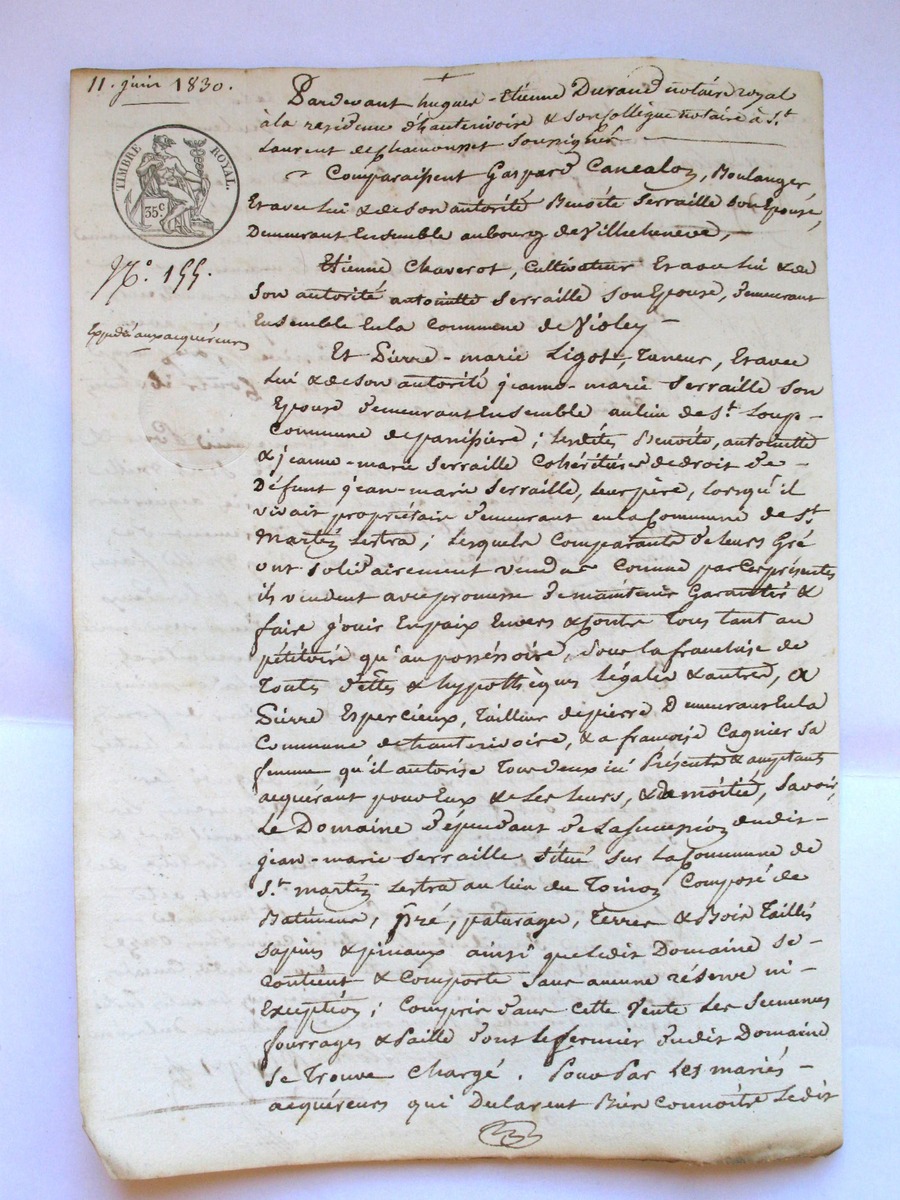 11. juin 1830.
TIMBRE ROYAL.
35.c
N.o 155.
Expédié aux acquéreurs
Pardevant hugues-Etienne Durand notaire royal
à la residence d'hauterivoire & son Collègue notaire à S.t
Laurent de Chamousset Soussignés
Comparaissent Gaspard Cancalon, Boulanger
Et avec lui & de son autorité Benoite Serraille son Epouse,
Demeurant Ensemble au bourg de Villecheneve,
Etienne Chaverot, Cultivateur Et avec lui & de
Son autorité antoinette Serraille son Epouse, demeurant
Ensemble En la Commune de Violey
Et Pierre-marie Ligot, Tuneur, Et avec
Lui & de son autorité jeanne-marie Serraille son
Epouse demeurant Ensemble au lieu de S.t Loup-
Commune de panissiere; lesdites Benoite, antoinette
& jeanne-marie Serraille Cohéritières de droit de-
Défunt jean-marie Serraille, leur père, lorsqu'il
vivait propriétaire demeurant en la Commune de S.t
Martin Lestra; Lesquels Comparants de leurs Gré
ont Solidairement vendu Comme par Ces présentes
ils vendent avec promesse de maintenir Garantir &
faire jouir En paix Envers & Contre Tous tant au
pétitoire qu'au possessoire, sous la franchise de
Toutes dettes & hypothèques légales & autres, a
Pierre Espercieux, Taillieur de pierre Demeurant En la
Commune de hauterivoire, & a françoise Cagnier sa
femme qu'il autorise Tous deux ici Présents & acceptants
acquérant pour Eux & Les Leurs, & de moitié, Savoir,
Le Domaine dépendant de La Succession dudit-
jean-marie Serraille, Situé sur La Commune de
S.t martin Lestra au lieu du Toinon Composé de
Batiments, Pré, paturage, Terres & Bois Taillis
sapins & pinaux ainsi que Ledit Domaine se-
Contient & Comporte Sans aucune réserve ni-
Exception; Compris dans Cette Vente Les Semences
fourrages & Paille dont Le fermier dudit Domaine
Se Trouve Chargé. Pour Par Les mariés-
acquéreurs qui Déclarent Bien Connoitre Ledit